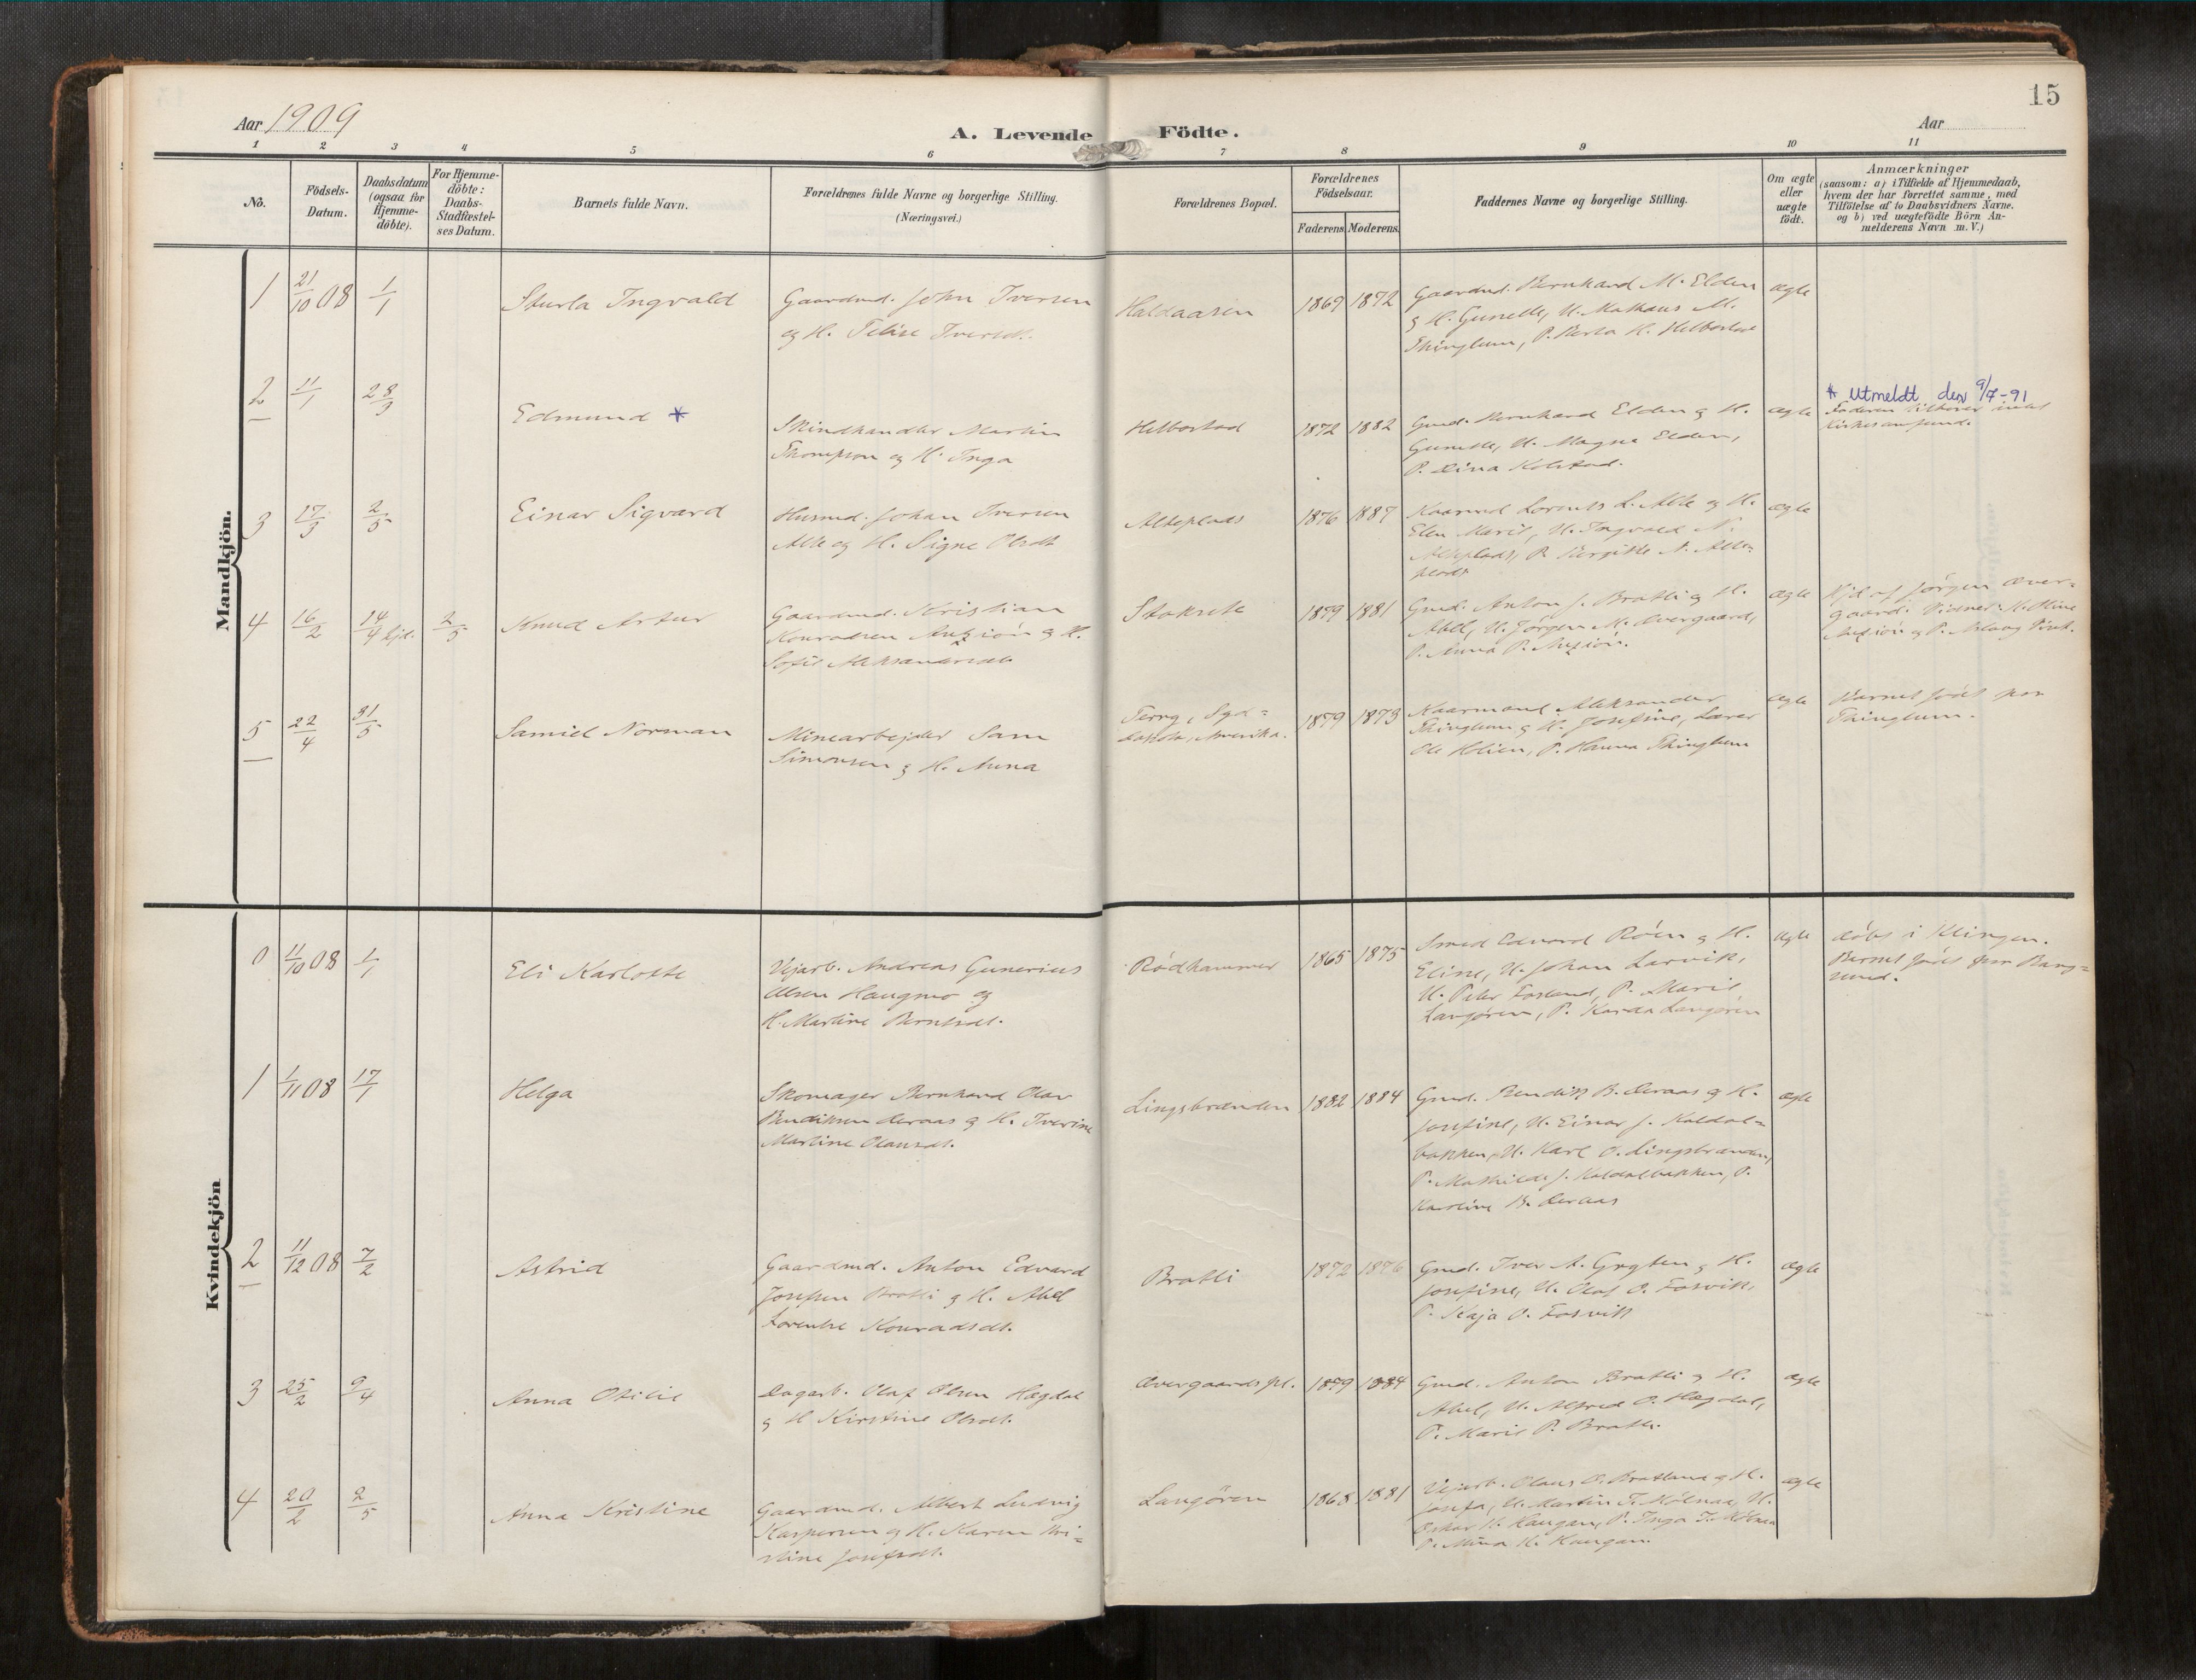 15
Aar 1909
A. Levende Födte.
Aar
1 2 3 4 5 6 7 8 9 10 11
No.
Födsels-
Datum.
Daabsdatum
(ogsaa for
Hjemme-
döbte).
For Hjemme-
döbte:
Daabs-
Stadfæstel-
ses Datum.
Barnets fulde Navn.
Forældrenes fulde Navne og borgerlige Stilling.
(Næringsvei.)
Forældrenes Bopæl.
Forældrenes
Födselsaar.
Faderens Moderens
Faddernes Navne og borgerlige Stilling.
Om ægte
eller
uægte
født.
Anmærkninger
(saasom: a) i Tilfælde af Hjemmedaab,
hvem der har forrettet samme, med
Tilföielse af to Daabsvidners Navne,
og b) ved uægtefødte Börn An-
melderens Navn m. V.)
Mandkjön.
1
21/10 08
1/1
Sturla Ingvald
Gaardmd. John Iversen
og H.
Haldaasen
1869 1872
Gaardmd. Bernhard M. Elden
& H. Gunelle, U. M.
Thinglum, P. Berta H. Helbostad
ægte
2
11/1
28/3
Edmund *
Skindhandler Martin
Thompson og H. Inga
Helbostad
1872 1882
Gmd. Bernhard Elden & H.
Gunelle, U. Magne Elden,
P. Dina Kolstad.
ægte
* Utmeldt den 9/7-91
Faderen tilhører intet
Kirkesamfund.
3
17/3
2/5
Einar Sigvard
Husmd. Johan Iversen
Alte og H. Signe Olsdt
Alteplads
1876 1887
Kaarmd Lorents L. Alte og H.
Elen Marie, U. Ingvald N.
Alteplads, P. N. Alte-
plads
ægte
4
16/2
14/4 hjd.
2/5
Knud Artur
Gaardmd. Kristian
Konradsen Anzión & H.
Sofie Aleksandersdt.
Stoksete
1879 1881
Gmd. Anton J. Bratli & H.
Abel, U. Jörgen M. Overgaard,
P. Anna P. Anzión.
ægte
Hjd af Jörgen Over-
gaard. Vidner: H. Oline
Anzión & P.
5
22/4
31/5
Samiel Norman
Minearbejder Sam
Simonsen & H. Anna
Terry, Syd-
dakota, Amerika.
1879 1873
Kaarmand Aleksander
Thinglum & H. Josefine, Lærer
Ole Holien, P. Hanna Thinglum
ægte
Barnet födt paa
Thinglum.
Kvindekjön
0
11/10 08
1/1
Eli Karlotte
Vejarb. Andreas Gunerius
Olsen Haugmo og
H. Martine Berntsdt.
Rödhammer
1865 1875
Smed Edvard Röen & H.
Eline, U. Johan Larvik,
U. Peter Fosland, P. Marie
Langören, P. Karda Langören
ægte
döbt i Klingen.
Barnet födt før Bang-
sund.
1
1/11 08
17/1
Helga
Skomager Bernhard Olav
Bendiksen Deraas & H. Iverine
Martine Olausdt.
Lingsbranden
1882 1884
Gmd. Bendik B. Deraas & H.
Josefine, U. Einar J. Kaldal-
bakken, U. Karl O. Lingsbranden,
P. Mathilde J. Kaldalbakken, P.
Karoline B. Deraas
ægte
2
11/12 08
7/2
Astrid
Gaardmd. Anton Edvard
Josefsen Bratli & H. Abel
Lorentse Konradsdt.
Bratli
1872 1876
Gmd. Iver A. Grytten & H.
Josefine, U. Olaf O. Fosvik,
P. Kaja O. Fosvik
ægte
3
25/2
9/4
Anna Otilie
Dagarb. Olaf Olsen Hagdal
& H Kirstine Olsdt.
Overgaards pl.
1879 1884
Gmd. Anton Bratli & H.
Abel, U. Alfred O. Hagdal,
P. Marie P. Bratli.
ægte
4
20/2
2/5
Anna Kristine
Gaardmd. Albert Ludvig
Kaspersen & H. Karen Kri-
stine Josefsdt.
Langören
1868 1881
Vejarb. Olaus O. Bratland & H.
Josefa, U. Martin T. U.
Oskar H. Haugan, P. Inga T.
P. Mina H. Haugan.
ægte